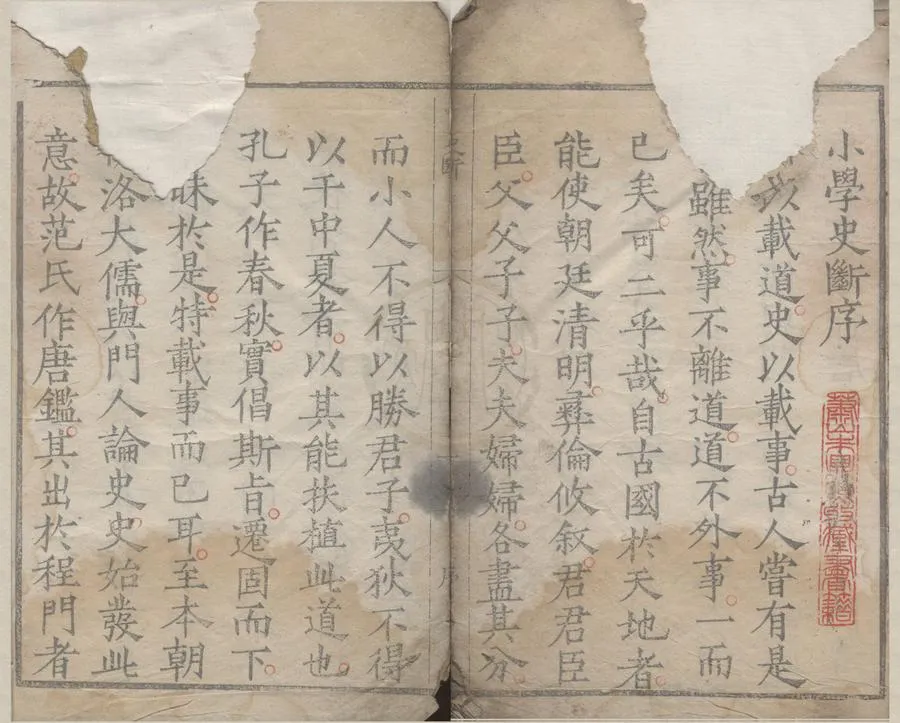 小學史斷序
蕭山朱鼎煦收藏書籍
以載道。史以載事。古人嘗有是
雖然。事不離道。道不外事。一而
已矣。可二乎哉。自古國於天地者。
能使朝廷清明。彝倫攸叙。君君臣
臣。父父子子。夫夫婦婦。各盡其分。
史斷
序
而小人不得以勝君子。夷狄不得
以干中夏者。以其能扶植此道也。
孔子作春秋。實倡斯旨。遷固而下。
昧於是。特載事而已耳。至本朝
洛大儒。與門人論史。史始發此
意。故范氏作唐鑑。其出於程門者